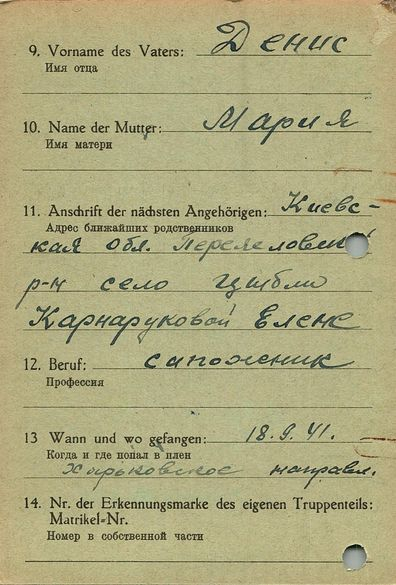 9. Vorname des Vaters: Денис
Имя отца
10. Name der Mutter: Мария
Имя матери
11. Anschrift der nächsten Angehörigen: Киевс-
Адрес ближайших родственников
кая обл.
р-н село Цибли
Карнаруковой Елене
12. Beruf: сапожник
Профессия
13 Wann und wo gefangen: 18.9.41.
Когда и где попал в плен
Харьковское направл.
14. Nr. der Erkennungsmarke des eigenen Truppenteils:
Matrikel-Nr.
Номер в собственной части